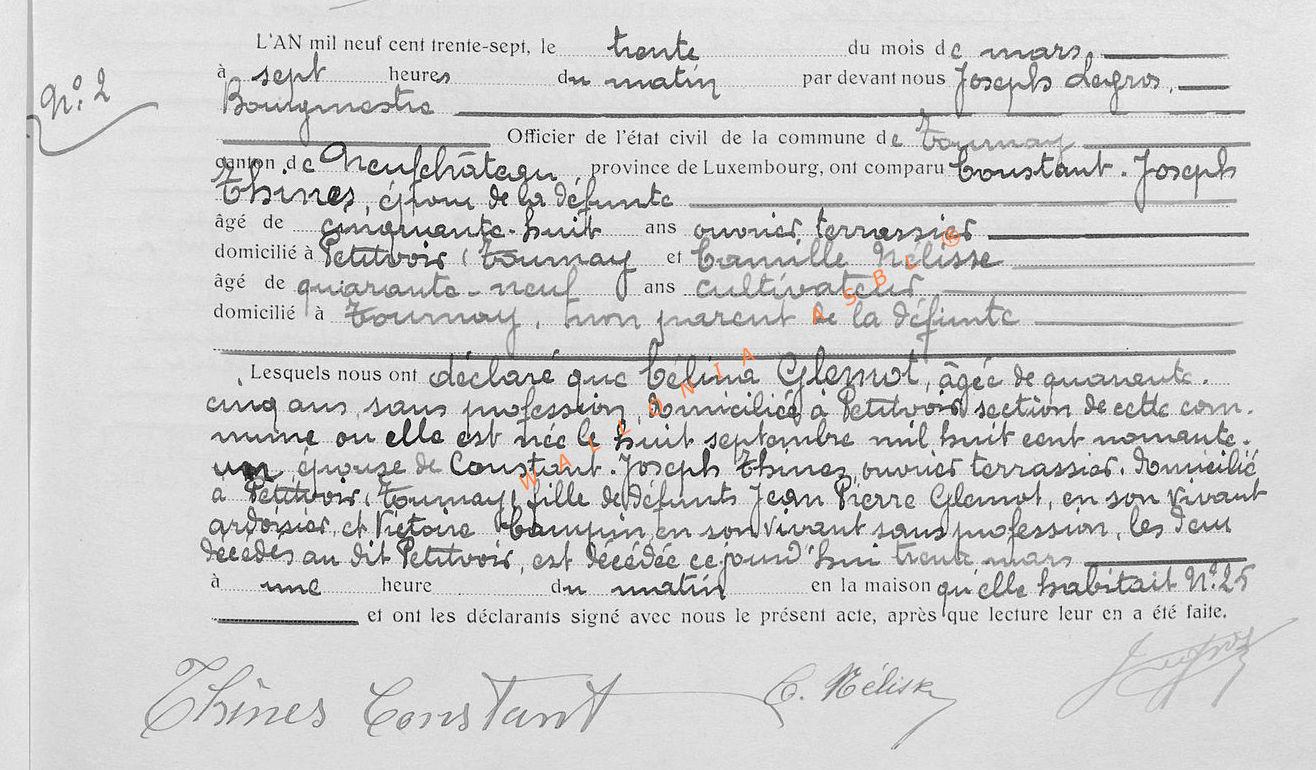 L'AN mil neuf cent trente-sept, le trente du mois de mars,
à sept heures du matin par devant nous Joseph Legros,
Nº 2
Bourgmestre
Officier de l'état civil de la commune de Tournay
canton de Neufchâteau, province de Luxembourg, ont comparu Constant-Joseph
Thines, époux de la défunte
âgé de cinquante-huit ans ouvrier terrassier
domicilié à Petitvoir (Tournay et Camille Nélisse
âgé de quarante-neuf ans cultivateur
domicilié à Tournay, non parent de la défunte
Lesquels nous ont déclaré que Célina Glemot, âgée de quarante-
cinq ans, sans profession, domiciliée à Petitvoir section de cette com-
mune ou elle est née le huit septembre mil huit cent nonante-
un épouse de Constant-Joseph Thines, ouvrier terrassier, domicilié
à Petitvoir (Tournay) fille de défunts Jean Pierre Glemot, en son vivant
ardoisier, et Victoire en son vivant sans profession, les deux
décédés au dit Petitvoir, est décédée ce jourd'hui trente mars
à une heure du matin en la maison qu'elle habitait Nº 25
et ont les déclarants signé avec nous le présent acte, après que lecture leur en a été faite.
Thînes Constant C. Nélisse JLegros
WALLONIA ASBL ®